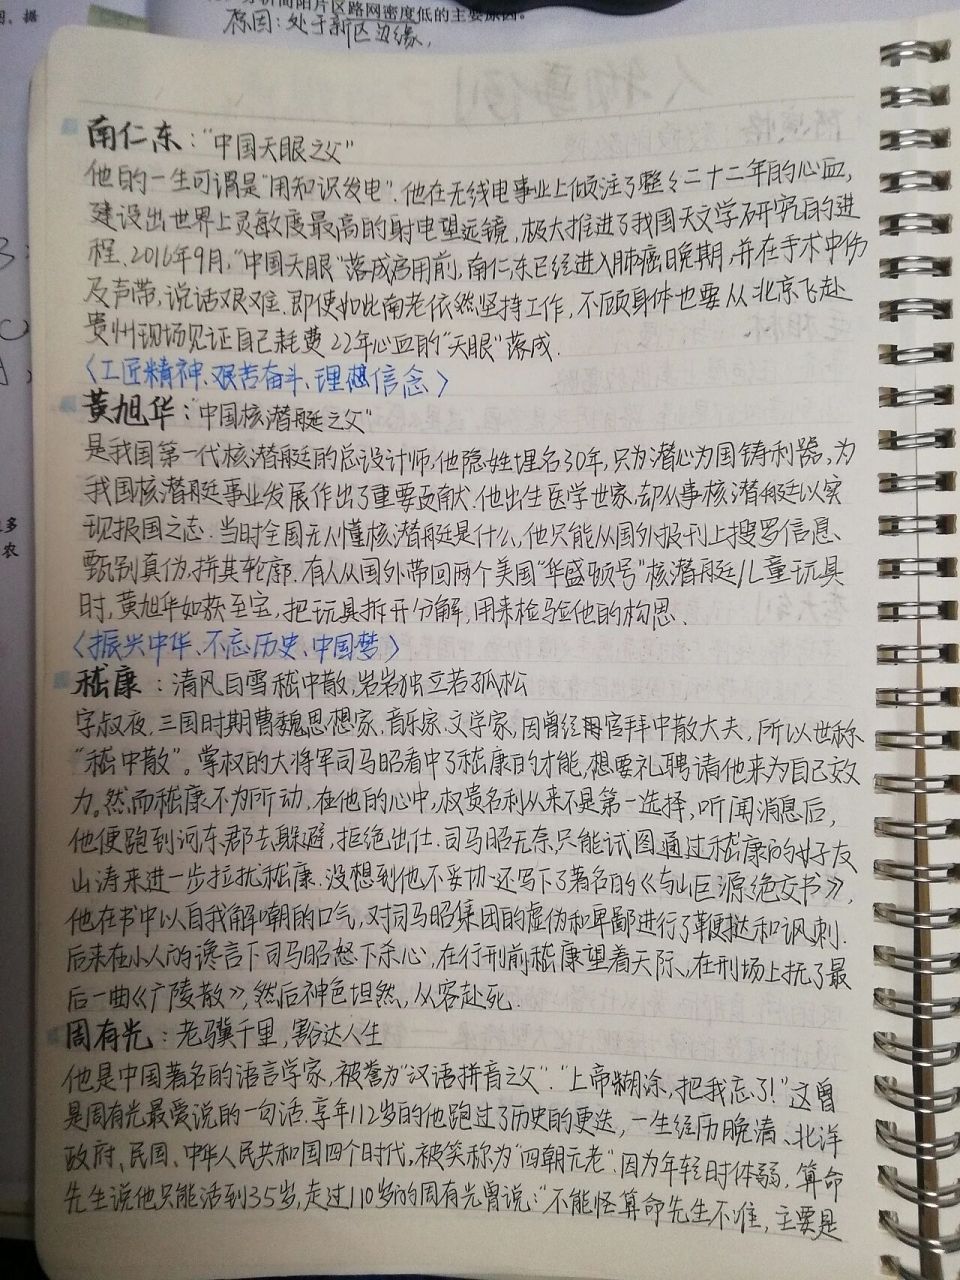 原因：处于新区边缘，
南仁东：“中国天眼之父”
他的一生可谓是“用知识发电”.他在无线电事业上倾注了整整二十二年的心血，
建设出世界上灵敏度最高的射电望远镜，极大推进了我国天文学研究的进
程.2016年9月，“中国天眼”落成启用前，南仁东已经进入肺癌晚期，并在手术中伤
及声带，说话艰难.即使如此南老依然坚持工作，不顾身体也要从北京飞赴
贵州现场见证自己耗费22年心血的“天眼”落成.
〈工匠精神、艰苦奋斗、理想信念〉
黄旭华：“中国核潜艇之父”
是我国第一代核潜艇的总设计师，他隐姓埋名30年，只为潜心为国铸利器，为
我国核潜艇事业发展作出了重要贡献.他出生医学世家，却从事核潜艇以实
现报国之志.当时全国无人懂核潜艇是什么，他只能从国外报刊上搜罗信息、
甄别真伪、拼其轮廓.有人从国外带回两个美国“华盛顿号”核潜艇儿童玩具
时，黄旭华如获至宝，把玩具拆开分解，用来检验他的构思.
〈振兴中华、不忘历史、中国梦〉
嵇康：清风白雪嵇中散，岩岩独立若孤松
字叔夜，三国时期曹魏思想家、音乐家、文学家，因曾经官拜中散大夫，所以世称
“嵇中散”。掌权的大将军司马昭看中了嵇康的才能，想要礼聘请他来为自己效
力.然而嵇康不为所动，在他的心中，权贵名利从来不是第一选择，听闻消息后，
他便跑到河东郡去躲避，拒绝出仕.司马昭无奈只能试图通过嵇康的好友
山涛来进一步拉拢嵇康.没想到他不妥协还写下了著名的《与山巨源绝交书》，
他在书中以自我解嘲的口气，对司马昭集团的虚伪和卑鄙进行了鞭挞和讽刺.
后来在小人的谗言下司马昭怒下杀心，在行刑前嵇康望着天际、在刑场上抚了最
后一曲《广陵散》，然后神色坦然、从容赴死.
周有光：老骥千里，豁达人生
他是中国著名的语言学家，被誉为“汉语拼音之父”.“上帝糊涂，把我忘了！”这曾
是周有光最爱说的一句话.享年112岁的他跑过了历史的更迭，一生经历晚清、北洋
政府、民国、中华人民共和国四个时代，被笑称为“四朝元老”.因为年轻时体弱，算命
先生说他只能活到35岁，走过110岁的周有光曾说：“不能怪算命先生不准，主要是